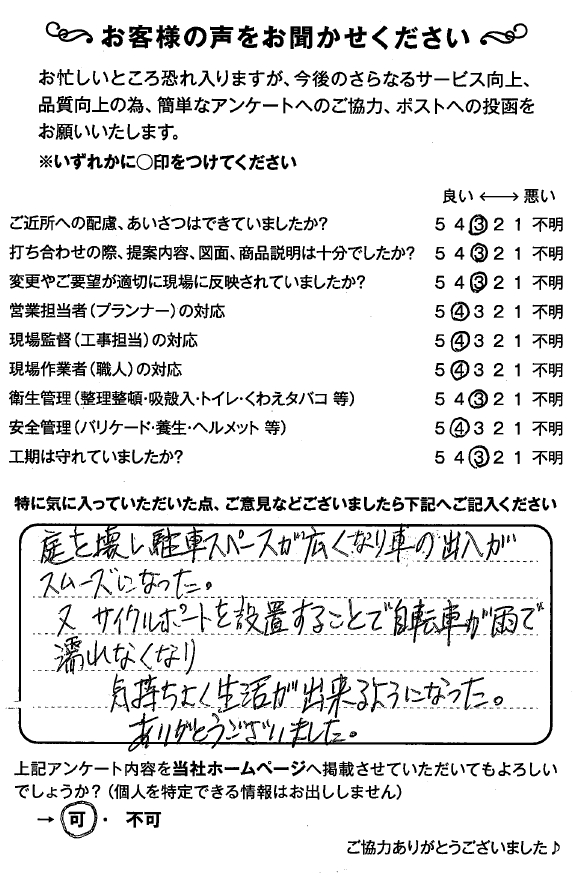 お客様の声をお聞かせください
お忙しいところ恐れ入りますが、今後のさらなるサービス向上、
品質向上の為、簡単なアンケートへのご協力、ポストへの投函を
お願いいたします。
※いずれかに○印をつけてください
良い ←→ 悪い
ご近所への配慮、あいさつはできていましたか? 5 4 ③ 2 1 不明
打ち合わせの際、提案内容、図面、商品説明は十分でしたか? 5 4 ③ 2 1 不明
変更やご要望が適切に現場に反映されていましたか? 5 4 ③ 2 1 不明
営業担当者(プランナー)の対応 5 ④ 3 2 1 不明
現場監督(工事担当)の対応 5 ④ 3 2 1 不明
現場作業者(職人)の対応 5 ④ 3 2 1 不明
衛生管理(整理整頓・吸殻入・トイレ・くわえタバコ 等) 5 4 ③ 2 1 不明
安全管理(バリケード・養生・ヘルメット 等) 5 ④ 3 2 1 不明
工期は守れていましたか? 5 4 ③ 2 1 不明
特に気に入っていただいた点、ご意見などございましたら下記へご記入ください
庭を壊し駐車スペースが広くなり車の出入が
スムーズになった。
又 サイクルポートを設置することで自転車が雨で
濡れなくなり
気持ちよく生活が出来るようになった。
ありがとうございました。
上記アンケート内容を当社ホームページへ掲載させていただいてもよろしい
でしょうか?(個人を特定できる情報はお出ししません)
→ 可 ・ 不可
ご協力ありがとうございました♪